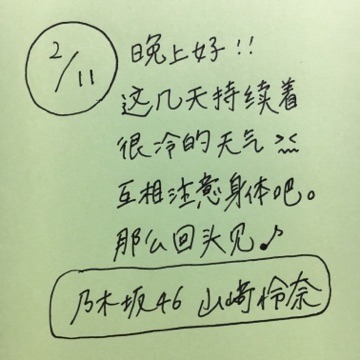 2/11
晚上好!!
这几天持续着
很冷的天气
互相注意身体吧。
那么回头见♪
乃木坂46 山崎怜奈